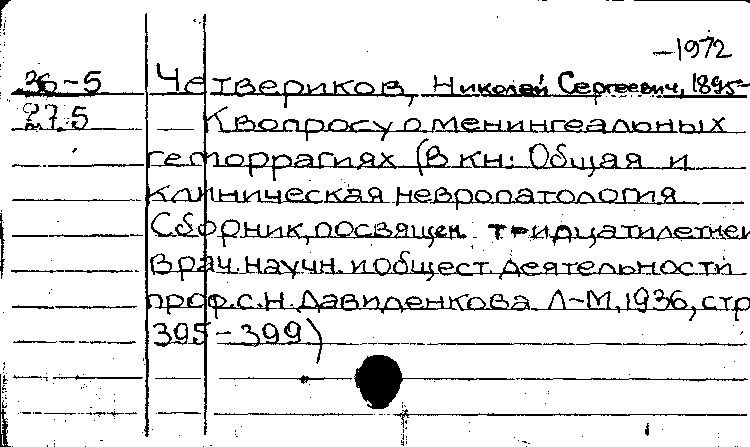 –1972
36–5 Четвериков, Николай Сергеевич, 1895–
27.5 К вопросу о менингеальных
геморрагиях (В кн: Общая и
клиническая невропатология
Сборник, посвящен. тридцатилетней
врач. научн. и общест. деятельности
проф. С.Н. Давиденкова Л–М, 1936, стр
395–399)